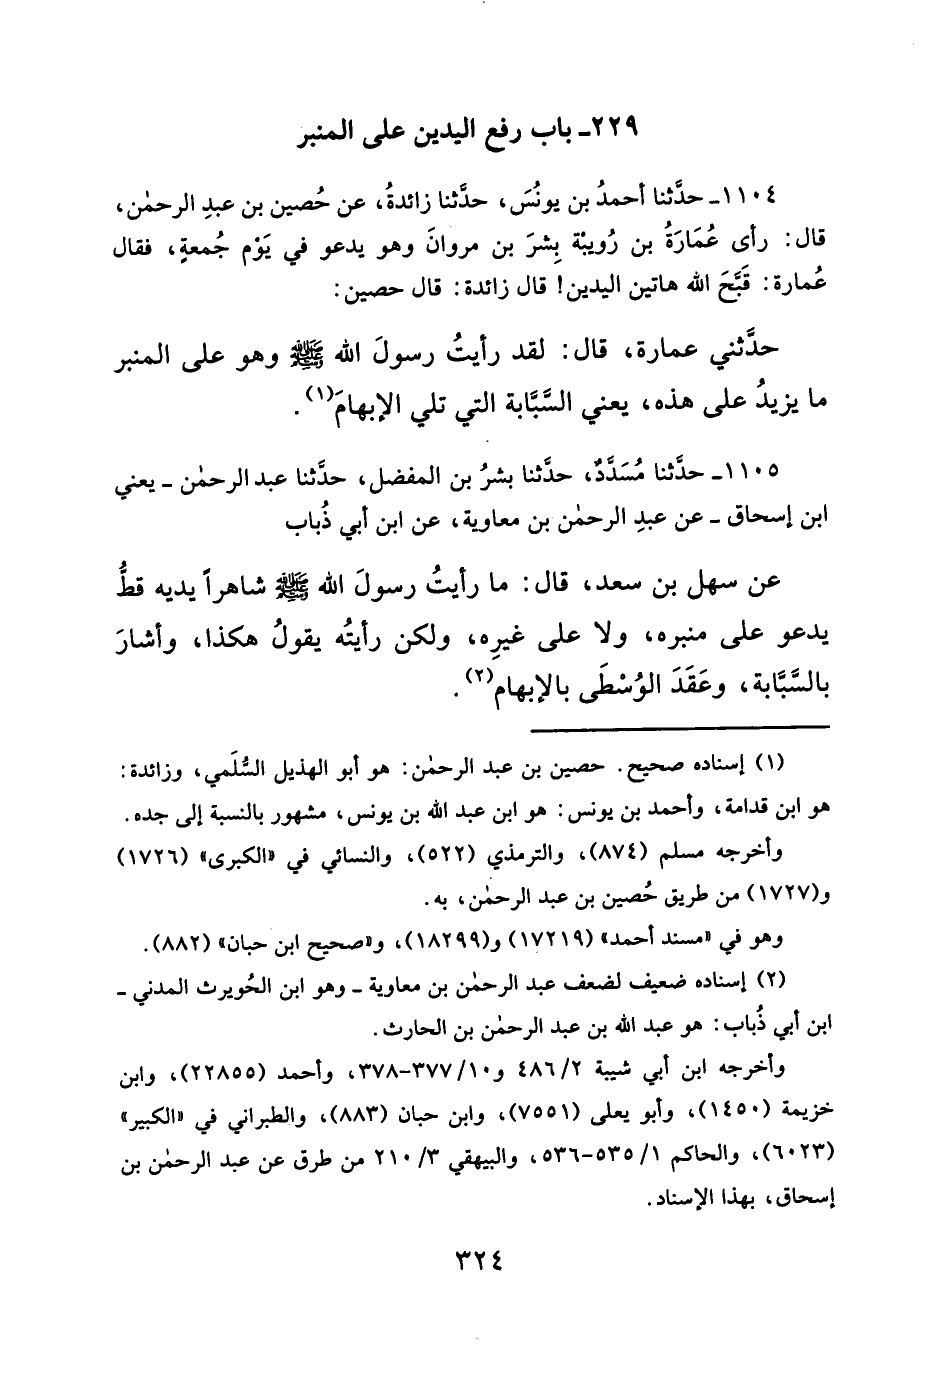 ٢٢٩ـ باب رفع اليدين على المنبر
١١٠٤ـ حدَّثنا أحمدُ بن يونُسَ، حدَّثنا زائدةُ، عن حُصين بن عبدِ الرحمٰن،
قال: رأى عُمَارَةُ بن رُويبْة بِشرَ بن مروانَ وهو يدعو في يَوْم جُمعةٍ، فقال
عُمارة: قَبَّحَ الله هاتين اليدين! قال زائدة: قال حصين:
حدَّثني عمارة، قال: لقد رأيتُ رسولَ الله ﷺ وهو على المنبر
ما يزيدُ على هذه، يعني السَّبَّابة التي تلي الإبهامَ(١).
١١٠٥ـ حدَّثنا مُسَدَّدٌ، حدَّثنا بشرُ بن المفضل، حدَّثنا عبد الرحمٰن ـ يعني
ابن إسحاق ـ عن عبدِ الرحمٰن بن معاوية، عن ابن أبي ذُباب
عن سهل بن سعد، قال: ما رأيتُ رسولَ الله ﷺ شاهراً يديه قطُّ
يدعو على منبره، ولا على غيرِه، ولكن رأيتُه يقولُ هكذا، وأشارَ
بالسَّبَّابة، وعَقَدَ الوُسْطَى بالإبهام(٢).
(١) إسناده صحيح. حصين بن عبد الرحمٰن: هو أبو الهذيل السُّلَمي، وزائدة:
هو ابن قدامة، وأحمد بن يونس: هو ابن عبد الله بن يونس، مشهور بالنسبة إلى جده.
وأخرجه مسلم (٨٧٤)، والترمذي (٥٢٢)، والنسائي في «الكبرى» (١٧٢٦)
و(١٧٢٧) من طريق حُصين بن عبد الرحمٰن، به.
وهو في «مسند أحمد» (١٧٢١٩) و(١٨٢٩٩)، و«صحيح ابن حبان» (٨٨٢).
(٢) إسناده ضعيف لضعف عبد الرحمٰن بن معاوية ـ وهو ابن الحُويرث المدني ـ
ابن أبي ذُباب: هو عبد الله بن عبد الرحمٰن بن الحارث.
وأخرجه ابن أبي شيبة ٤٨٦/٢ و٣٧٧/١٠-٣٧٨، وأحمد (٢٢٨٥٥)، وابن
خزيمة (١٤٥٠)، وأبو يعلى (٧٥٥١)، وابن حبان (٨٨٣)، والطبراني في «الكبير»
(٦٠٢٣)، والحاكم ٥٣٥/١-٥٣٦، والبيهقي ٢١٠/٣ من طرق عن عبد الرحمٰن بن
إسحاق، بهذا الإسناد.
٣٢٤